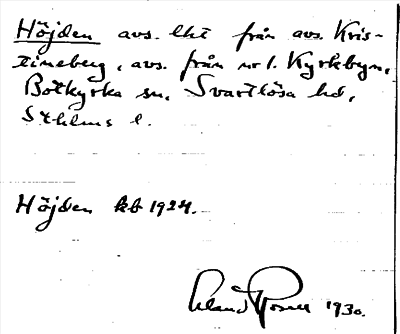 Höjden avs. lht från avs. Kris-
tineberg, avs. från nr 1. Kyrkbyn,
Botkyrka sn, Svartlösa hd,
Sthlms l.
Höjden kb 1924.
1930.